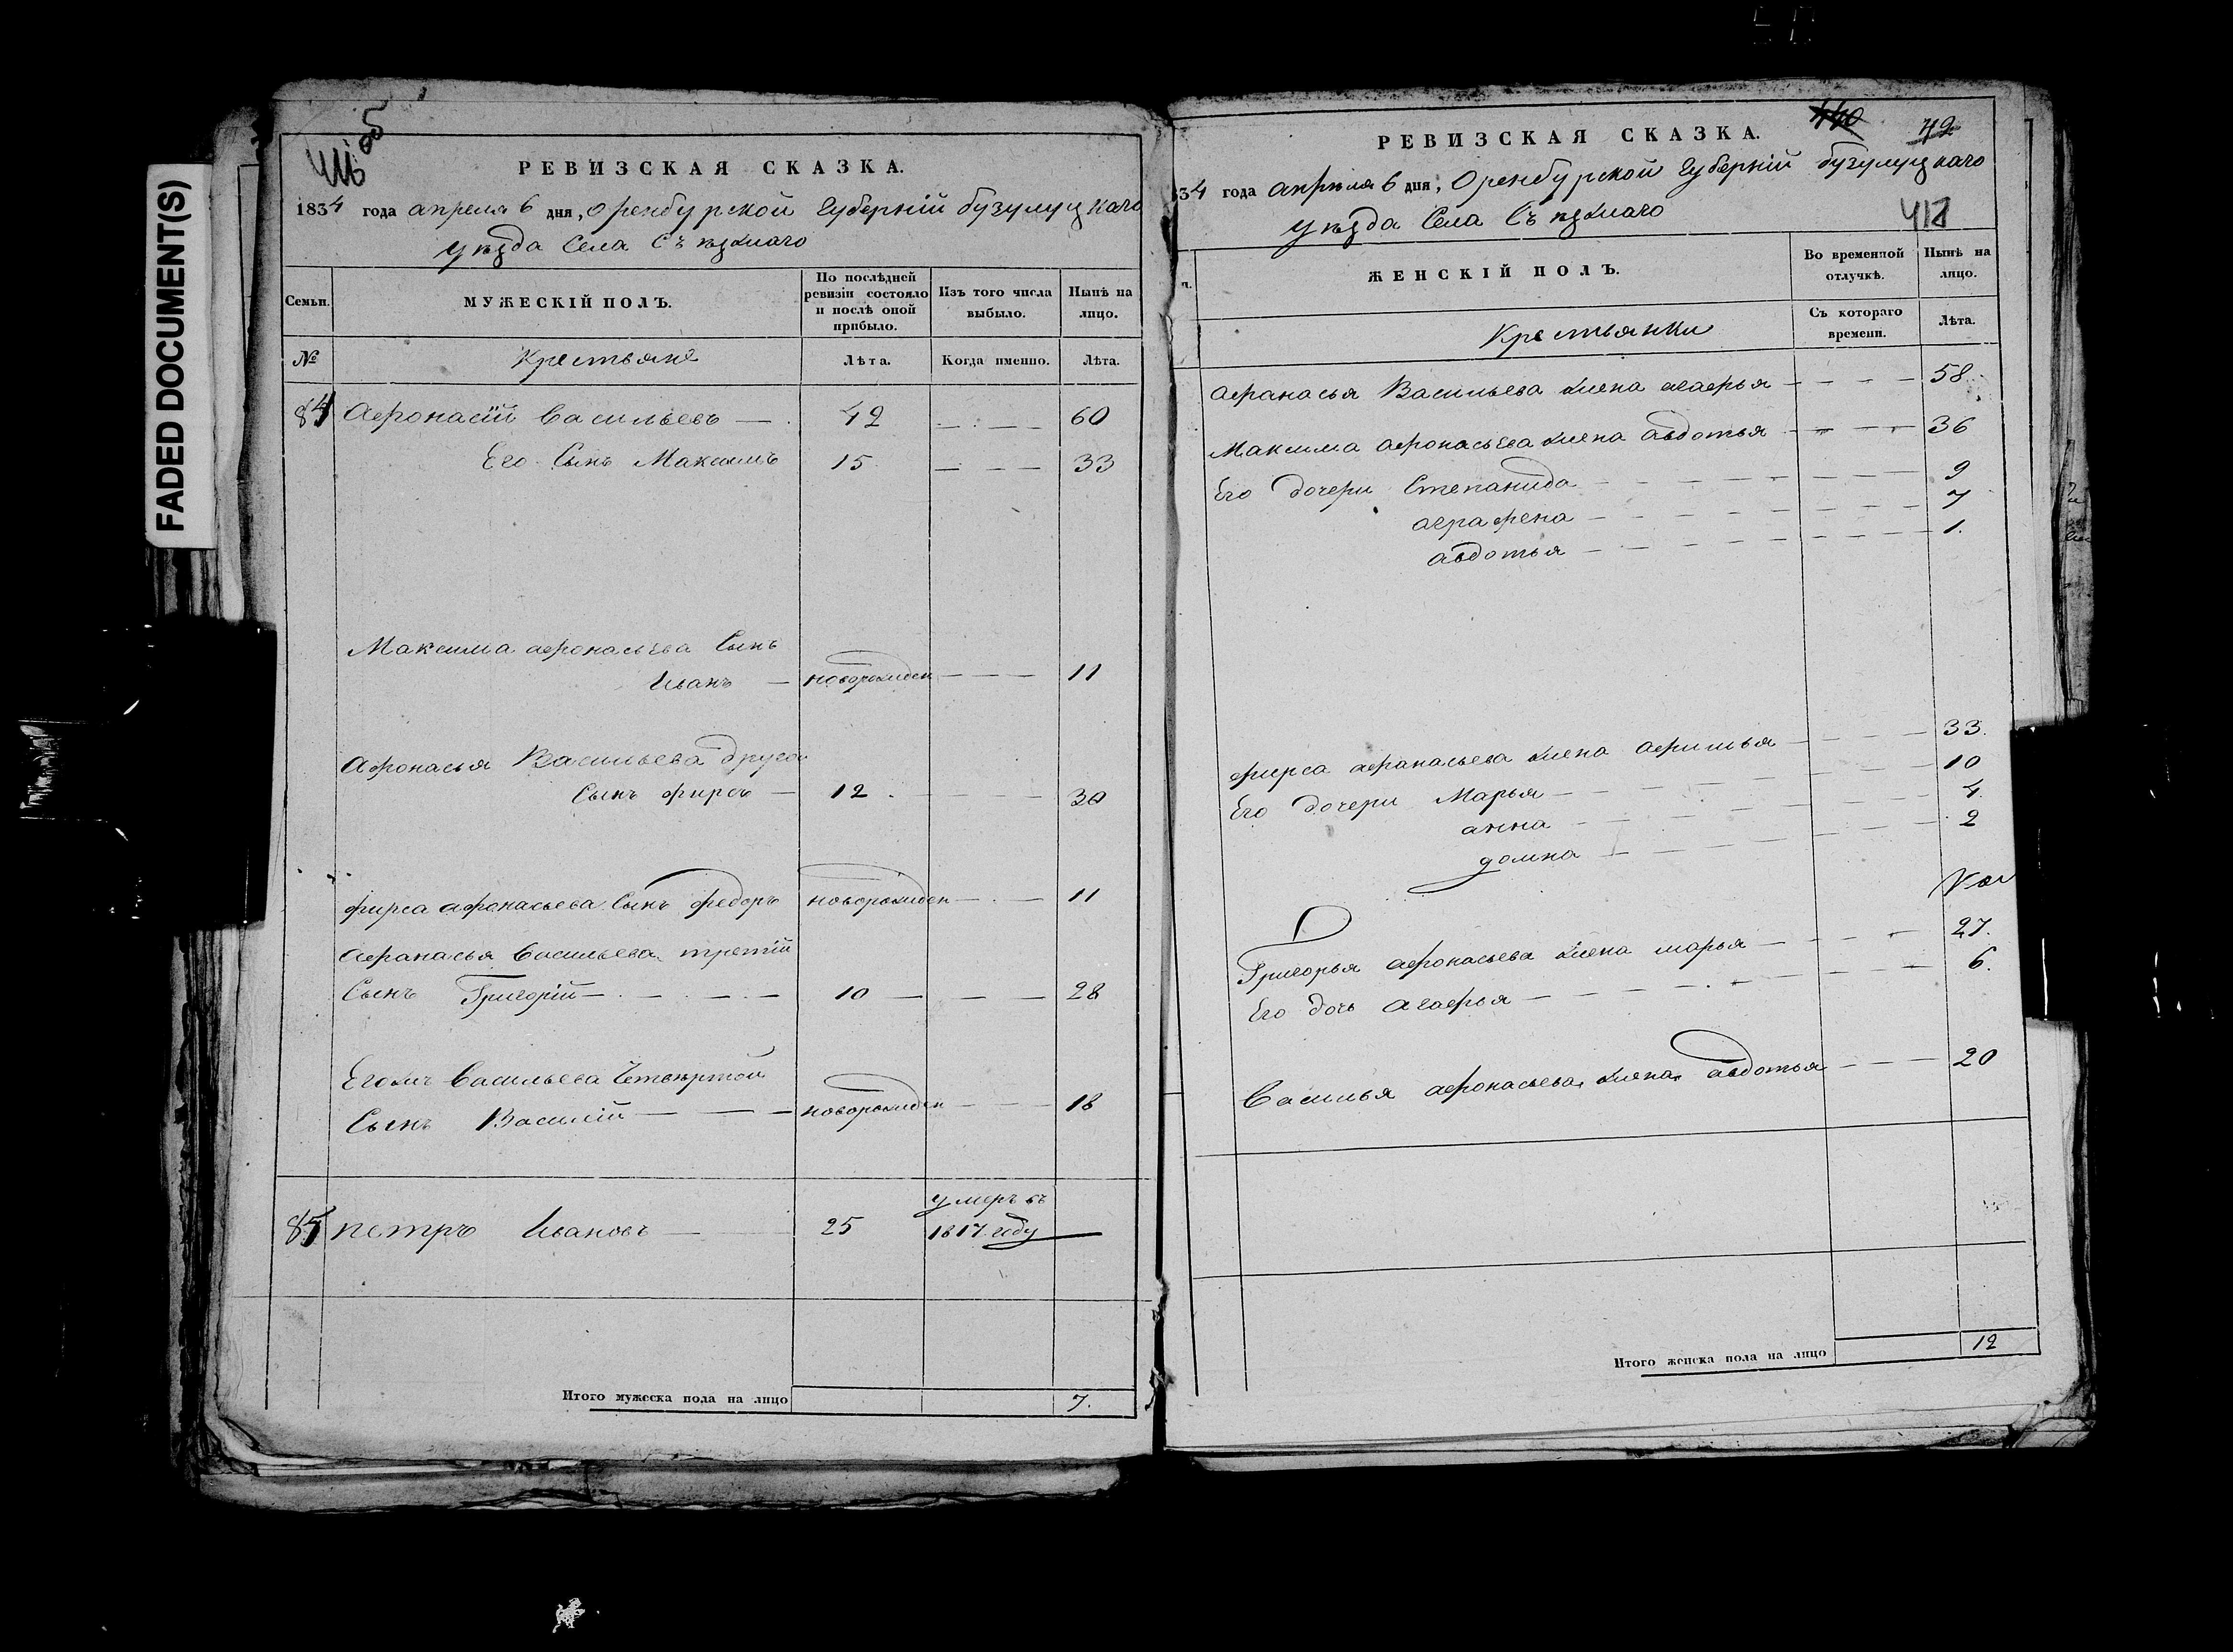 FADED DOCUMENT(S)
об
РЕВИЗСКАЯ СКАЗКА.
1834 года апреля 6 дня, Оренбурской Губерній бузулуцкаго
уѣзда Села Съѣзжаго
Семьи.
МУЖЕСКІЙ ПОЛЪ.
По послѣдней ревизіи состояло и послѣ оной прибыло.
Изъ того числа выбыло.
Нынѣ на лицо.
№
Крестьяне
Лѣта.
Когда именно.
Лѣта.
84 Афонасій Васильевъ — 42 — 60
Его Сынъ Максимъ 15 — 33
Максима афонасьева Сынъ
Иванъ — новорожден — 11
Афонасья Васильева другой
Сынъ фирсъ — 12 — 30
фирса афонасьева Сынъ федоръ новорожден — 11
Афанасья Васильева третій
Сынъ Григорій — 10 — 28
Егожъ Васильева Четвертой
Сынъ Василій — новорожден — 18
85 петръ Ивановъ — 25 умеръ въ
1817 году —
Итого мужеска пола на лицо 7.
РЕВИЗСКАЯ СКАЗКА.
440 42
34 года апреля 6 дня, Оренбурской Губерній бузулуцкаго
уѣзда Села Съѣзжаго
412
ЖЕНСКІЙ ПОЛЪ.
Во временной отлучкѣ.
Нынѣ на лицо.
Крестьянки
Съ котораго времени.
Лѣта.
Афанасья Васильева жена агафья — 58
Максима афонасьева жена авдотья — 36
Его дочери Степанида — 9
аграфена — 7
авдотья — 1.
фирса афанасьева жена афимья — 33.
Его дочери Марья — 10
анна — 4.
домна — 2
Григорья афонасьева жена марья — 27.
Его дочь агафья — 6.
Василья афонасьева жена авдотья — 20
Итого женска пола на лицо 12